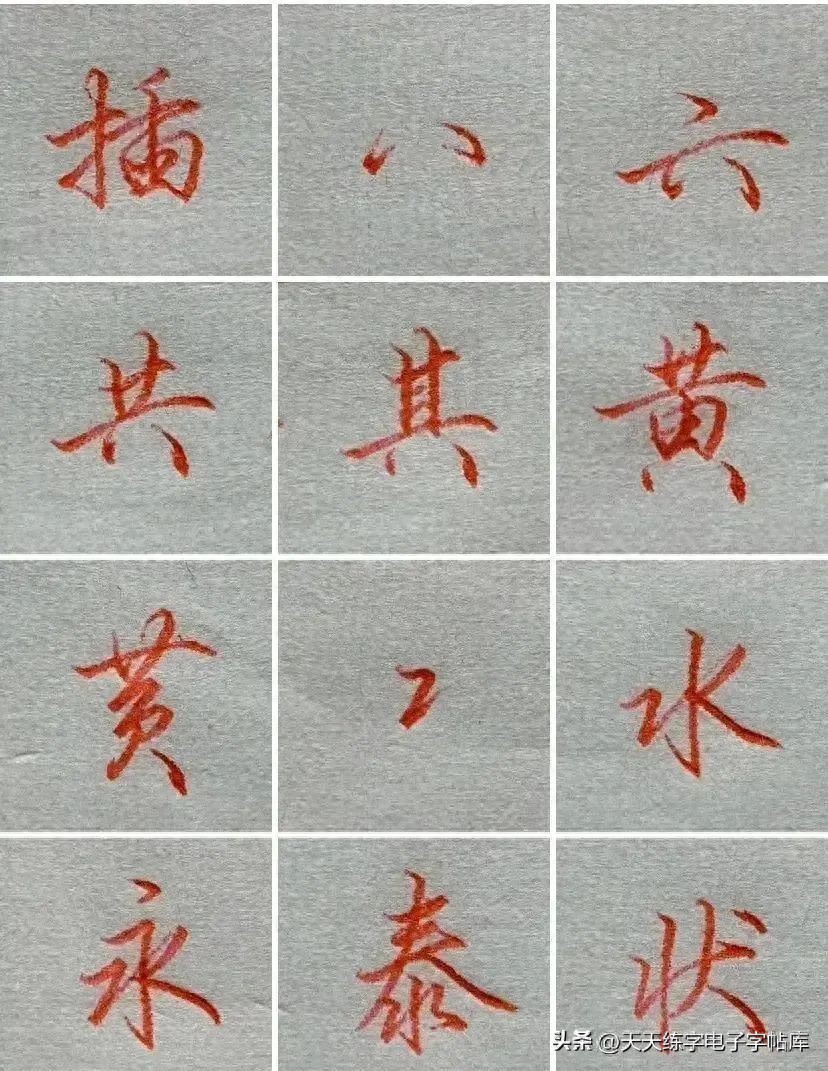 插 八 六
共 其 黄
黄 水
永 泰 状
头条 @天天练字电子字帖库